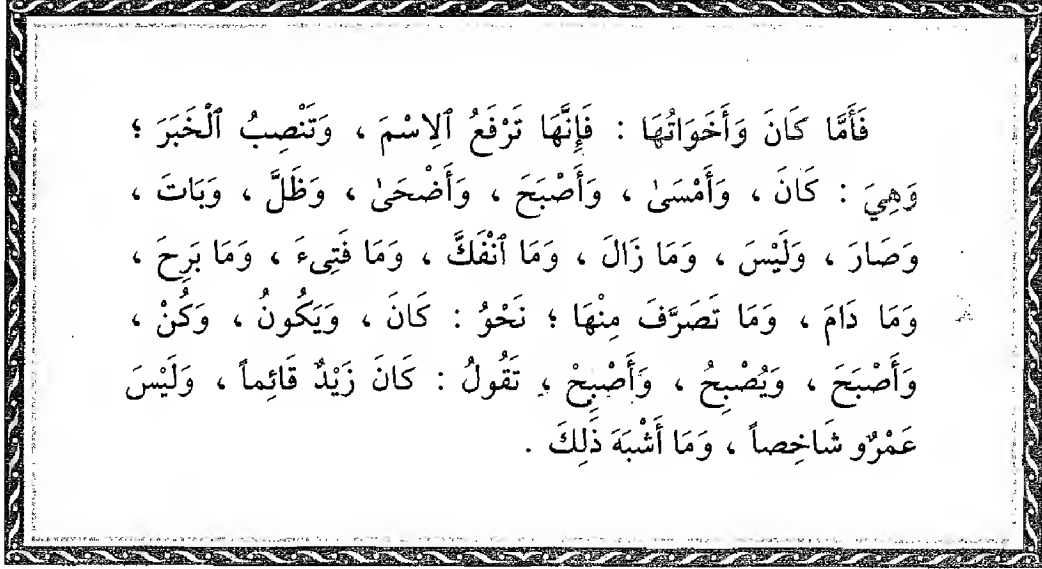 فَأَمَّا كَانَ وَأَخَوَاتُهَا : فَإِنَّهَا تَرْفَعُ ٱلِاسْمَ ، وَتَنْصِبُ ٱلْخَبَرَ ؛
وَهِيَ : كَانَ ، وَأَمْسَىٰ ، وَأَصْبَحَ ، وَأَضْحَىٰ ، وَظَلَّ ، وَبَاتَ ،
وَصَارَ ، وَلَيْسَ ، وَمَا زَالَ ، وَمَا ٱنْفَكَّ ، وَمَا فَتِىءَ ، وَمَا بَرِحَ ،
وَمَا دَامَ ، وَمَا تَصَرَّفَ مِنْهَا ؛ نَحْوُ : كَانَ ، وَيَكُونُ ، وَكُنْ ،
وَأَصْبَحَ ، وَيُصْبِحُ ، وَأَصْبِحْ ، تَقُولُ : كَانَ زَيْدٌ قَائِماً ، وَلَيْسَ
عَمْرٌو شَاخِصاً ، وَمَا أَشْبَهَ ذَٰلِكَ .